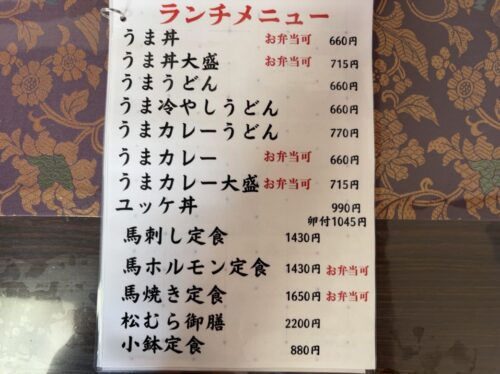 ランチメニュー
うま丼 お弁当可 660円
うま丼大盛 お弁当可 715円
うまうどん 660円
うま冷やしうどん 660円
うまカレーうどん 770円
うまカレー お弁当可 660円
うまカレー大盛 お弁当可 715円
ユッケ丼 990円
卵付1045円
馬刺し定食 1430円
馬ホルモン定食 1430円 お弁当可
馬焼き定食 1650円 お弁当可
松むら御膳 2200円
小鉢定食 880円